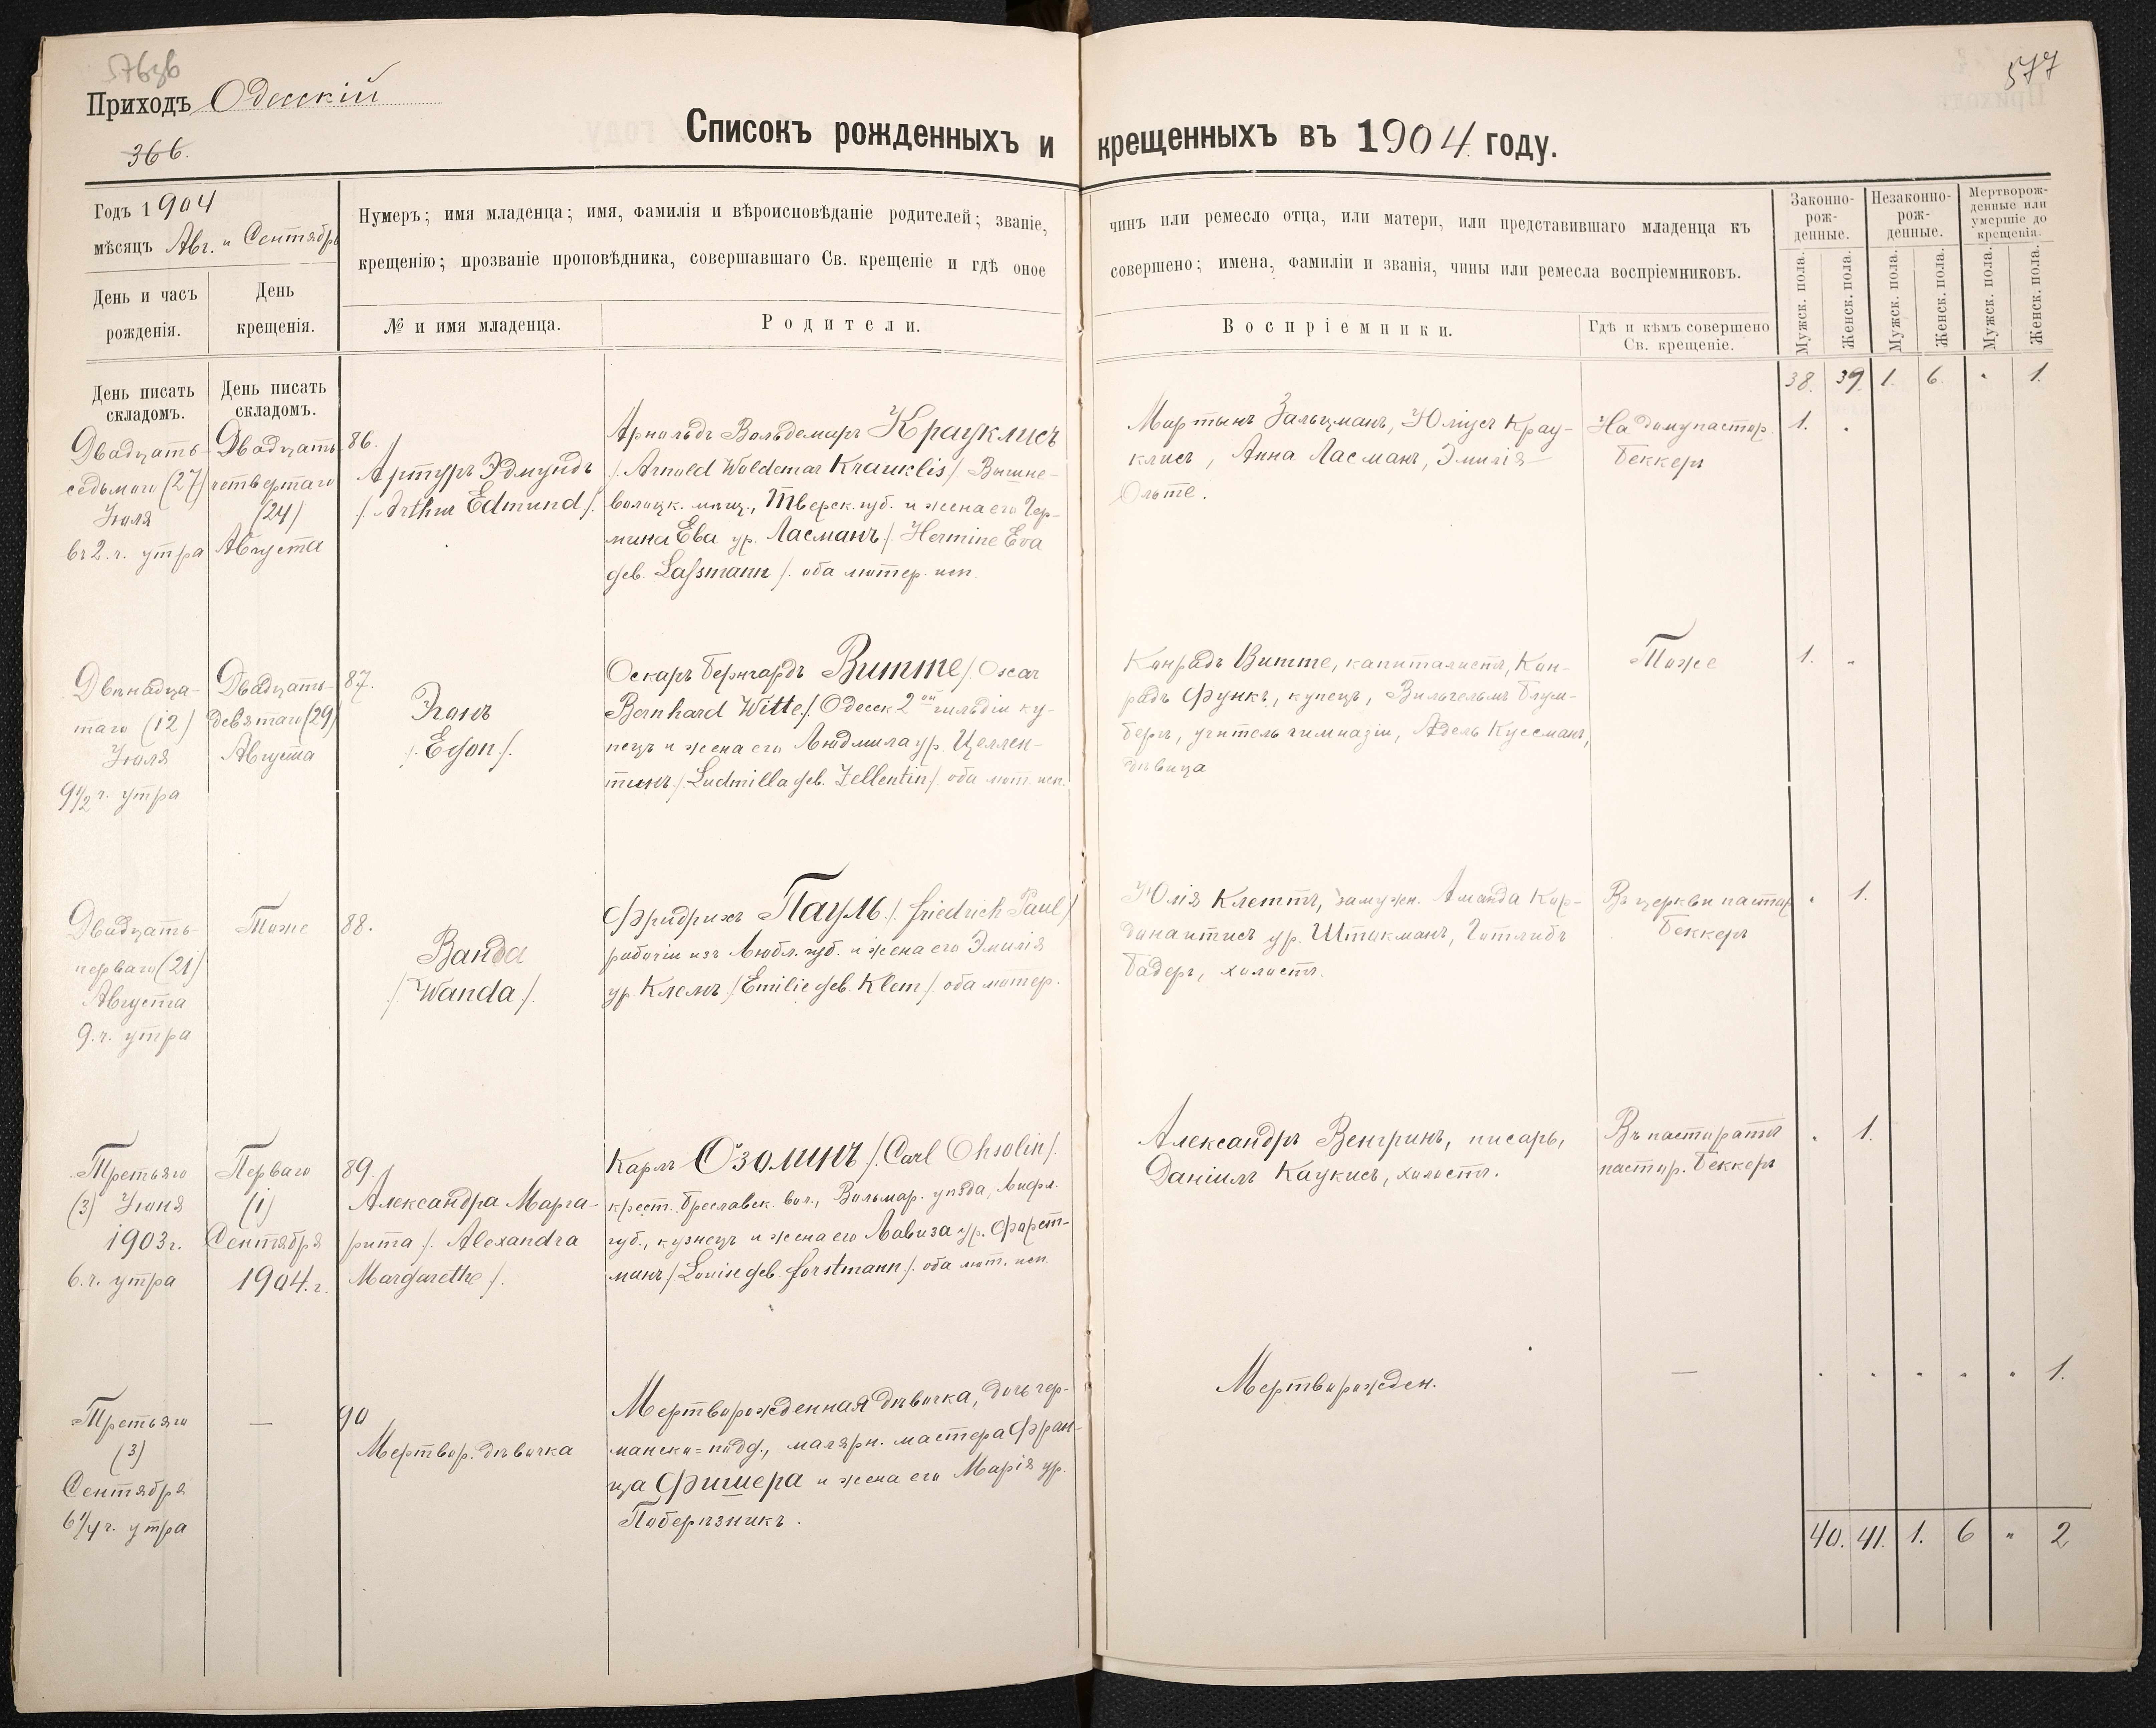 576об
577
Приходъ Одесскій
366.
Списокъ рожденныхъ и крещенныхъ въ 1904 году.
Годъ 1904
мѣсяцъ Авг. и Сентябрь
Нумеръ; имя младенца; имя, фамилія и вѣроисповѣданіе родителей; званіе, чинъ или ремесло отца, или матери, или представившаго младенца къ
крещенію; прозваніе проповѣдника, совершавшаго Св. крещеніе и гдѣ оное совершено; имена, фамиліи и званія, чины или ремесла воспріемниковъ.
Законно-
рож-
денные.
Незаконно-
рож-
денные.
Мертворож-
денные или
умершіе до
крещенія.
День и часъ
рожденія.
День
крещенія.
№ и имя младенца.
Родители.
Воспріемники.
Гдѣ и кѣмъ совершено
Св. крещеніе.
Мужск. пола.
Женск. пола.
Мужск. пола.
Женск. пола.
Мужск. пола.
Женск. пола.
День писать
складомъ.
День писать
складомъ.
38. 39. 1. 6. " 1.
Двадцать-
седьмого (27)
Іюля
въ 2. ч. утра
Двадцать
четвертаго
(24)
Августа
86.
Артуръ Эдмундъ
/. Arthur Edmund /.
Арнольдъ Вольдемаръ Крауклисъ
/. Arnold Woldemar Krauklis/ Вышне-
волоцк. мѣщ., Тверск. губ. и жена его Гер-
мина Ева ур. Ласманъ /. Hermine Eva
geb. Lassmann /. оба лютер. исп.
Мартынъ Зальцманъ, Юліусъ Крау-
клисъ, Анна Ласманъ, Эмилія
Ольте.
На дому пастор.
Беккеръ
1. "
Двѣнадца-
таго (12)
Іюля
9 1/2 ч. утра
Двадцать-
девятаго (29)
Августа
87.
Эгонъ
/. Egon /.
Оскаръ Бернгардъ Витте /. Oscar
Bernhard Witte /. Одесск 2ой гильдіи ку-
пецъ и жена его Людмила ур. Целлен-
тинъ /. Ludmilla geb. Zellentin /. оба лют. исп.
Конрадъ Витте, капиталистъ, Кон-
радъ Функъ, купецъ, Вильгельмъ Блум-
бергъ, учитель гимназіи, Адель Куссманъ,
дѣвица
Тоже
1. "
Двадцать-
перваго (21)
Августа
9. ч. утра
Тоже
88.
Ванда
/. Wanda /.
Фридрихъ Пауль /. Friedrich Paul /
рабочій изъ Любл. губ. и жена его Эмилія
ур. Клемъ /. Emilie geb. Klem /. оба лютер.
Юлія Клеттъ, замужн. Аманда Кор-
ур. Штакманъ, Готлибъ
Бадеръ, холостъ.
Въ церкви пастор
Беккеръ
" 1.
Третьяго
(3) Іюня
1903 г.
6. ч. утра
Перваго
(1)
Сентября
1904. г.
89.
Александра Марга-
рита /. Alexandra
Margarethe /.
Карлъ Озолинъ /. Carl Ohsolin /.
крест. Бреславск. вол., Вольмар. уѣзда, Лифл.
губ., кузнецъ и жена его Лавиза ур. Форст-
манъ /. Louise geb. Forstmann /. оба лют. исп.
Александръ Венгринъ, писарь,
Даніилъ Каукисъ, холостъ.
Въ пасторатѣ
пастор. Беккеръ
" 1.
Третьяго
(3)
Сентября
6 1/4 ч. утра
—
90
Мертвор. дѣвочка
Мертворожденная дѣвочка, дочь гер-
манско-подд., малярн. мастера Фран-
ца Фишера и жена его Марія ур.
Поберѣзникъ.
Мертворожден.
—
" " " " " 1.
40. 41. 1. 6 " 2